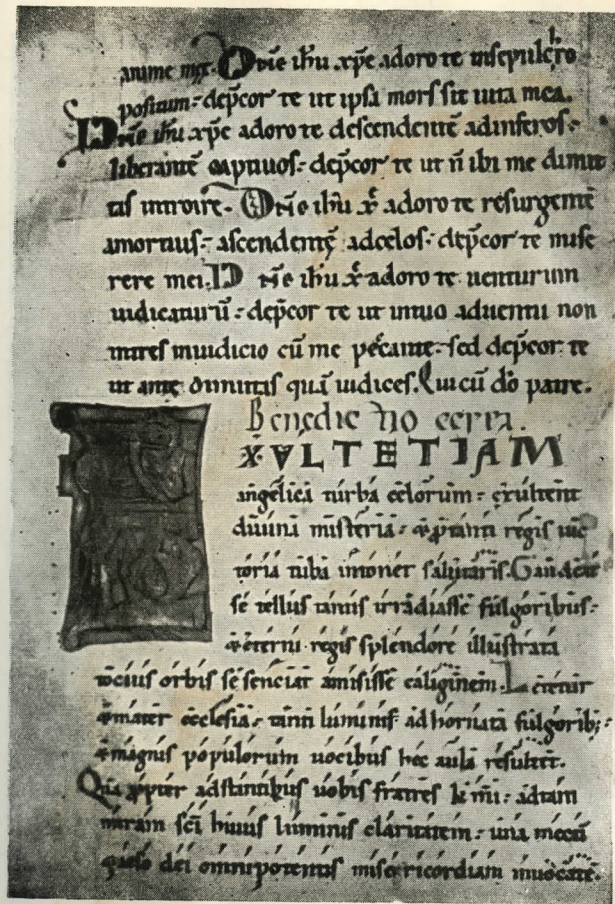 anime mee. Dn̄e ih̄u xp̄e adoro te in sepulchro
positum: dep̄cor te ut ipsa mors sit uita mea.
Dn̄e ih̄u xp̄e adoro te descendentē ad inferos:
liberantē captiuos: dep̄cor te ut n̄ ibi me dimit
tas introire. Dn̄e ih̄u xp̄ē adoro te resurgentē
a mortuis: ascendentē ad celos: dep̄cor te mise
rere mei. Dn̄e ih̄u xp̄ē adoro te uenturum
iudicaturū: dep̄cor te ut in tuo aduentu non
intres in iudicio cū me peccante: sed dep̄cor te
ut ante dimittas quā iudices. Qui cū dō patre.
Benedic̄tio cerei.
EXVLTET IAM
angelicā turba cęlorum: exultent
diuina misteria: & p̄ tanti regis uic
toria tuba intonet salutaris. Gaudeat
se tellus tantis irradiasse fulgoribus:
& ęterni regis splendore illustrata
tocius orbis se senciat amisisse caliginem. Lętetur
& mater ęcclesia: tanti luminis adhornata fulgorib;:
& magnis populorum uocibus hec aula resultet.
Qua p̄pter adstantibus uobis fratres k̄mi: ad tam
miram sc̄i huius luminis claritatem: una mecū
queso dei omnipotentis misericordiam inuocate.